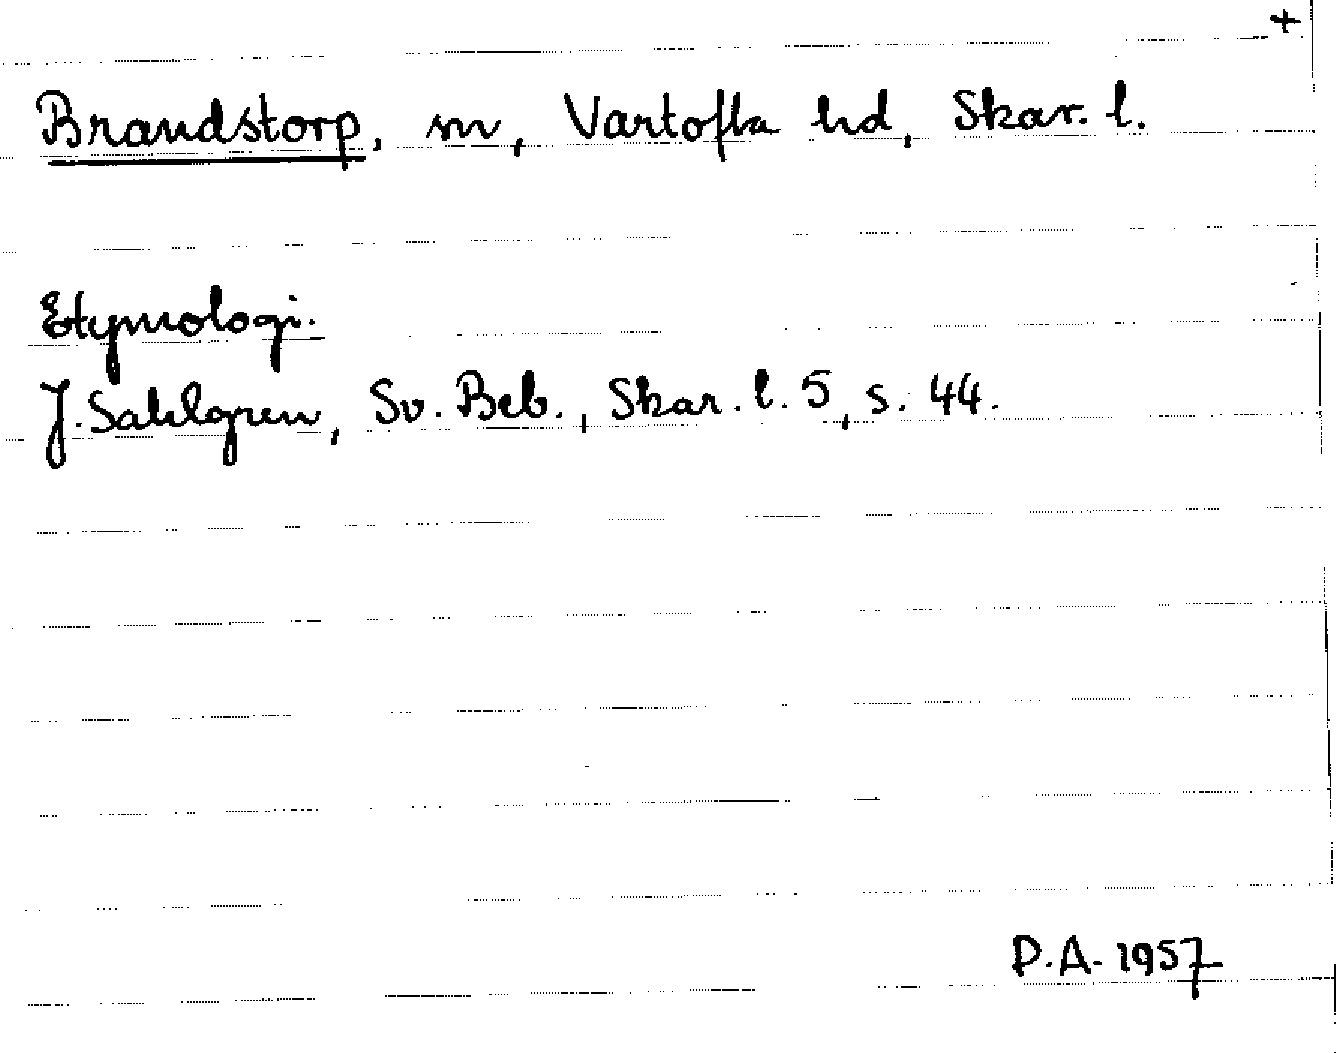 +
Brandstorp, sn, Vartofta hd, Skar. l.
Etymologi.
J. Sahlgren, Sv. Beb., Skar. l. 5, s. 44.
P.A. 1957